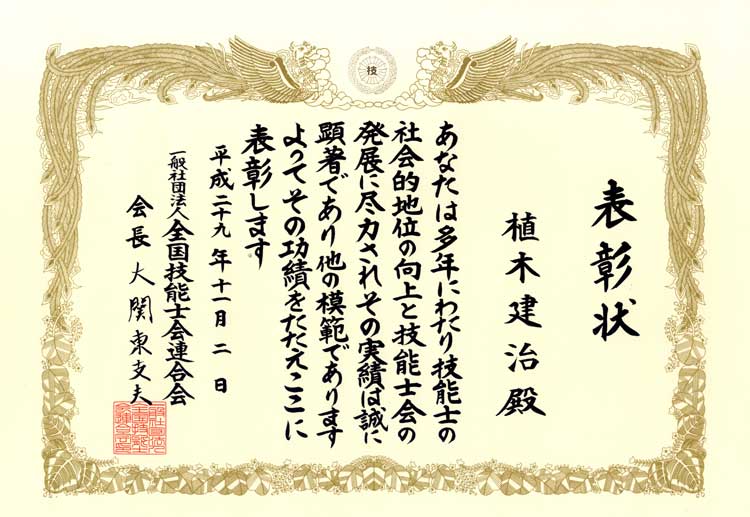 技
表彰状
植木建治殿
あなたは多年にわたり技能士の
社会的地位の向上と技能士会の
発展に尽力されその実績は誠に
顕著であり他の模範であります
よってその功績をたたえここに
表彰します
平成二十九年十一月二日
一般社団法人全国技能士会連合会
会長 大関東支夫